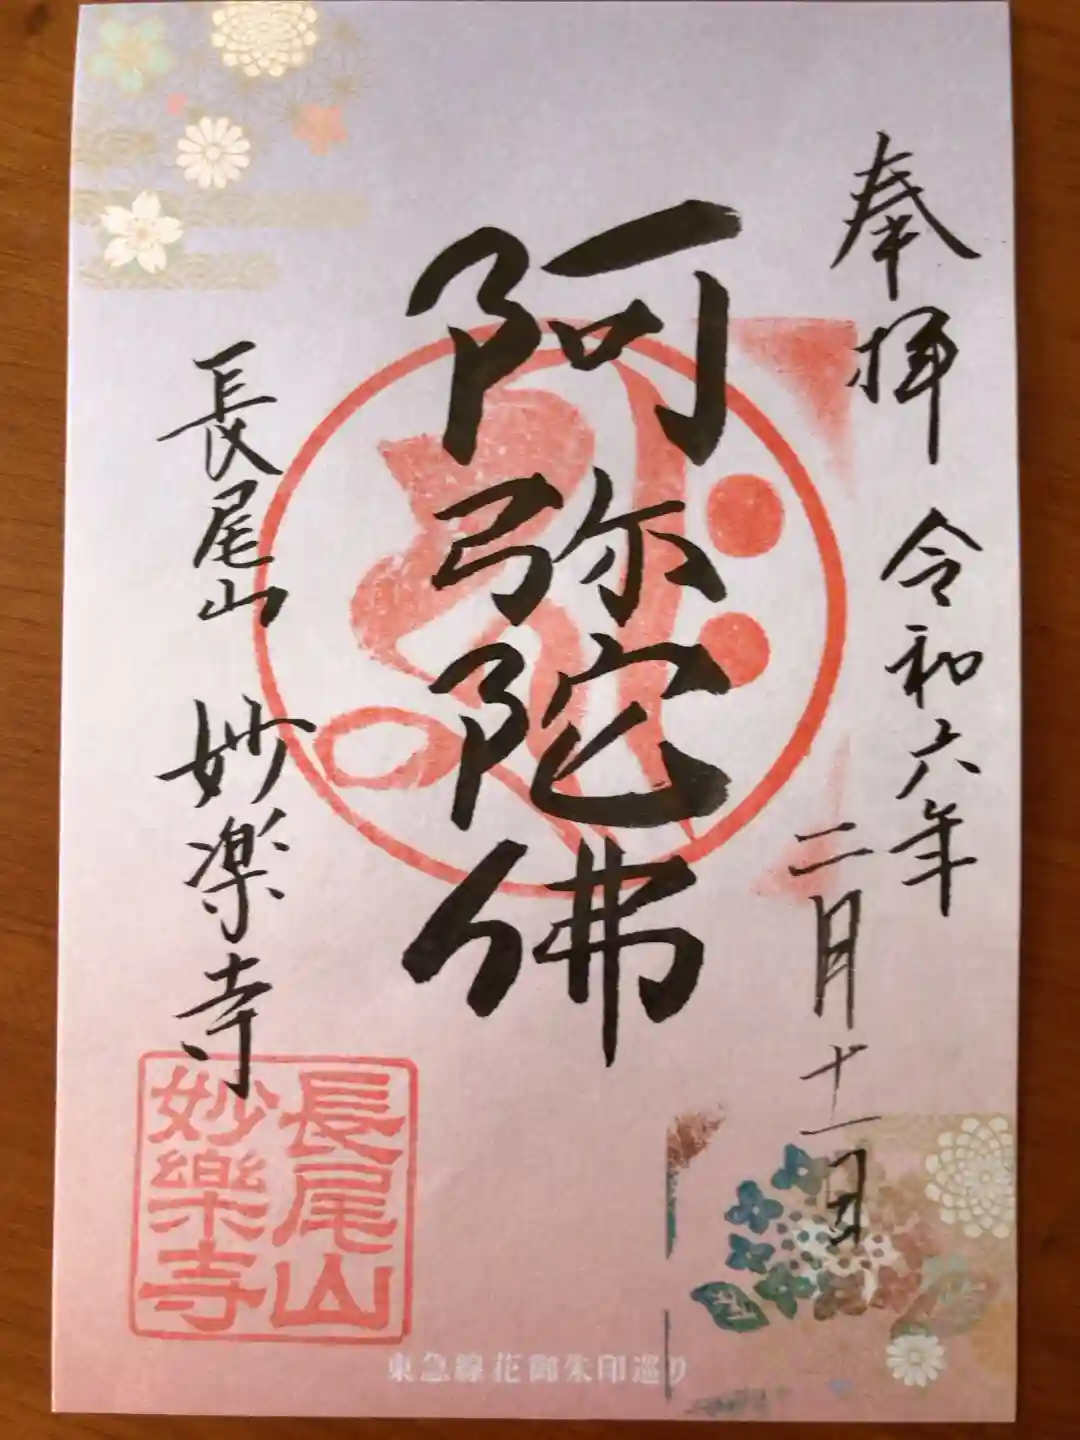 奉拝 令和六年
二月十一日
阿弥陀佛
長尾山 妙楽寺
長尾山
妙樂寺
東急線花御朱印巡り